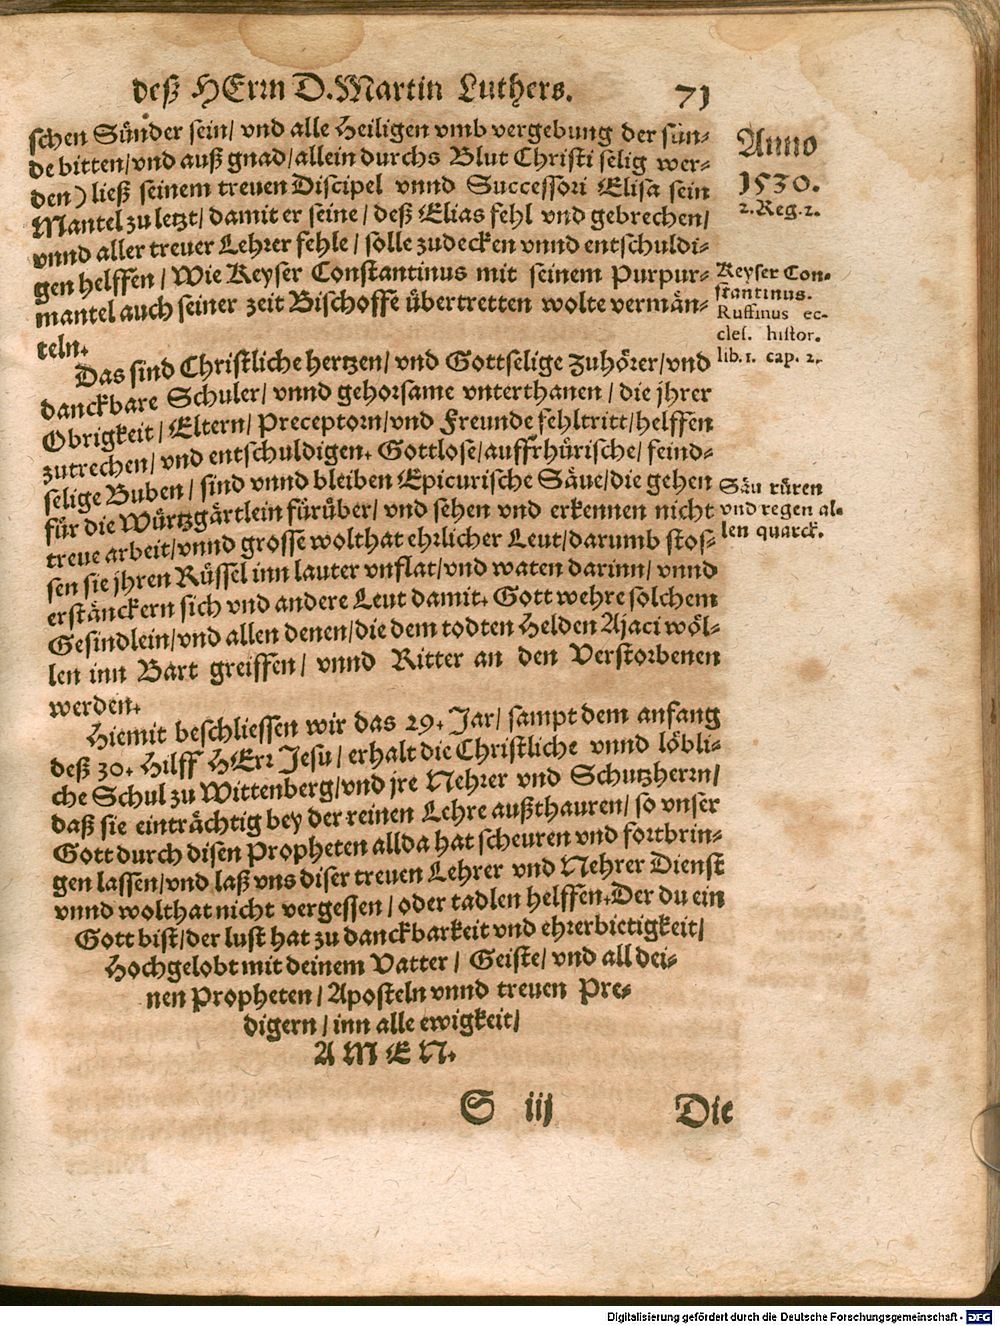 deß HErrn D. Martin Luthers. 71
schen Sünder sein/ vnd alle Heiligen vmb vergebung der sün-
de bitten/ vnd auß gnad/ allein durchs Blut Christi selig wer-
den) ließ seinem treuen Discipel vnnd Successori Elisa sein
Mantel zu letzt/ damit er seine/ deß Elias fehl vnd gebrechen/
vnnd aller treuer Lehrer fehle/ solle zudecken vnnd entschuldi-
gen helffen/ Wie Keyser Constantinus mit seinem Purpur-
mantel auch seiner zeit Bischoffe übertretten wolte vermän-
teln.
Anno
1530.
2. Reg. 2.
Keyser Con-
stantinus.
Ruffinus ec-
cles. histor.
lib. 1. cap. 2.
Das sind Christliche hertzen/ vnd Gottselige Zuhörer/ vnd
danckbare Schuler/ vnnd gehorsame vnterthanen/ die jhrer
Obrigkeit/ Eltern/ Preceptorn/ vnd Freunde fehltritt/ helffen
zutrechen/ vnd entschuldigen. Gottlose/ auffrhürische/ feind-
selige Buben/ sind vnnd bleiben Epicurische Säue/ die gehen
für die Würtzgärtlein fürüber/ vnd sehen vnd erkennen nicht
treue arbeit/ vnnd grosse wolthat ehrlicher Leut/ darumb stos-
sen sie jhren Rüssel inn lauter vnflat/ vnd waten darinn/ vnnd
erstänckern sich vnd andere Leut damit. Gott wehre solchem
Gesindlein/ vnd allen denen/ die dem todten Helden Ajaci wöl-
len inn Bart greiffen/ vnnd Ritter an den Verstorbenen
werden.
Säu rüren
vnd regen al-
len quarck.
Hiemit beschliessen wir das 29. Jar/ sampt dem anfang
deß 30. Hilff HErr Jesu/ erhalt die Christliche vnnd löbli-
che Schul zu Wittenberg/ vnd jre Nehrer vnd Schutzherrn/
daß sie einträchtig bey der reinen Lehre außthauren/ so vnser
Gott durch disen Propheten allda hat scheuren vnd fortbrin-
gen lassen/ vnd laß vns diser treuen Lehrer vnd Nehrer Dienst
vnnd wolthat nicht vergessen/ oder tadlen helffen. Der du ein
Gott bist/ der lust hat zu danckbarkeit vnd ehrerbietigkeit/
Hochgelobt mit deinem Vatter/ Geiste/ vnd all dei-
nen Propheten/ Aposteln vnnd treuen Pre-
digern/ inn alle ewigkeit/
AMEN.
S iij Die
Digitalisierung gefördert durch die Deutsche Forschungsgemeinschaft - DFG